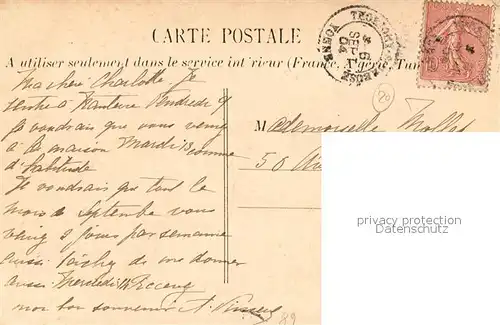 CARTE POSTALE
A utiliser seulement dans le service intérieur (France, Algérie, Tun
Ma chère Charlotte Je
rentre à Nanterre Vendredi 9
Je voudrais que vous veniez
à la maison Mardi 13 comme
d'habitude
Je voudrais que tout le
mois de Septembre vous
veniez 2 jours par semaine
aussi tâchez de me donner
aussi Mercredi 14 Recevez
mon bon souvenir
Mademoiselle Mollet
50
YONNE
6
SEPT
04
privacy protection
Datenschutz
89